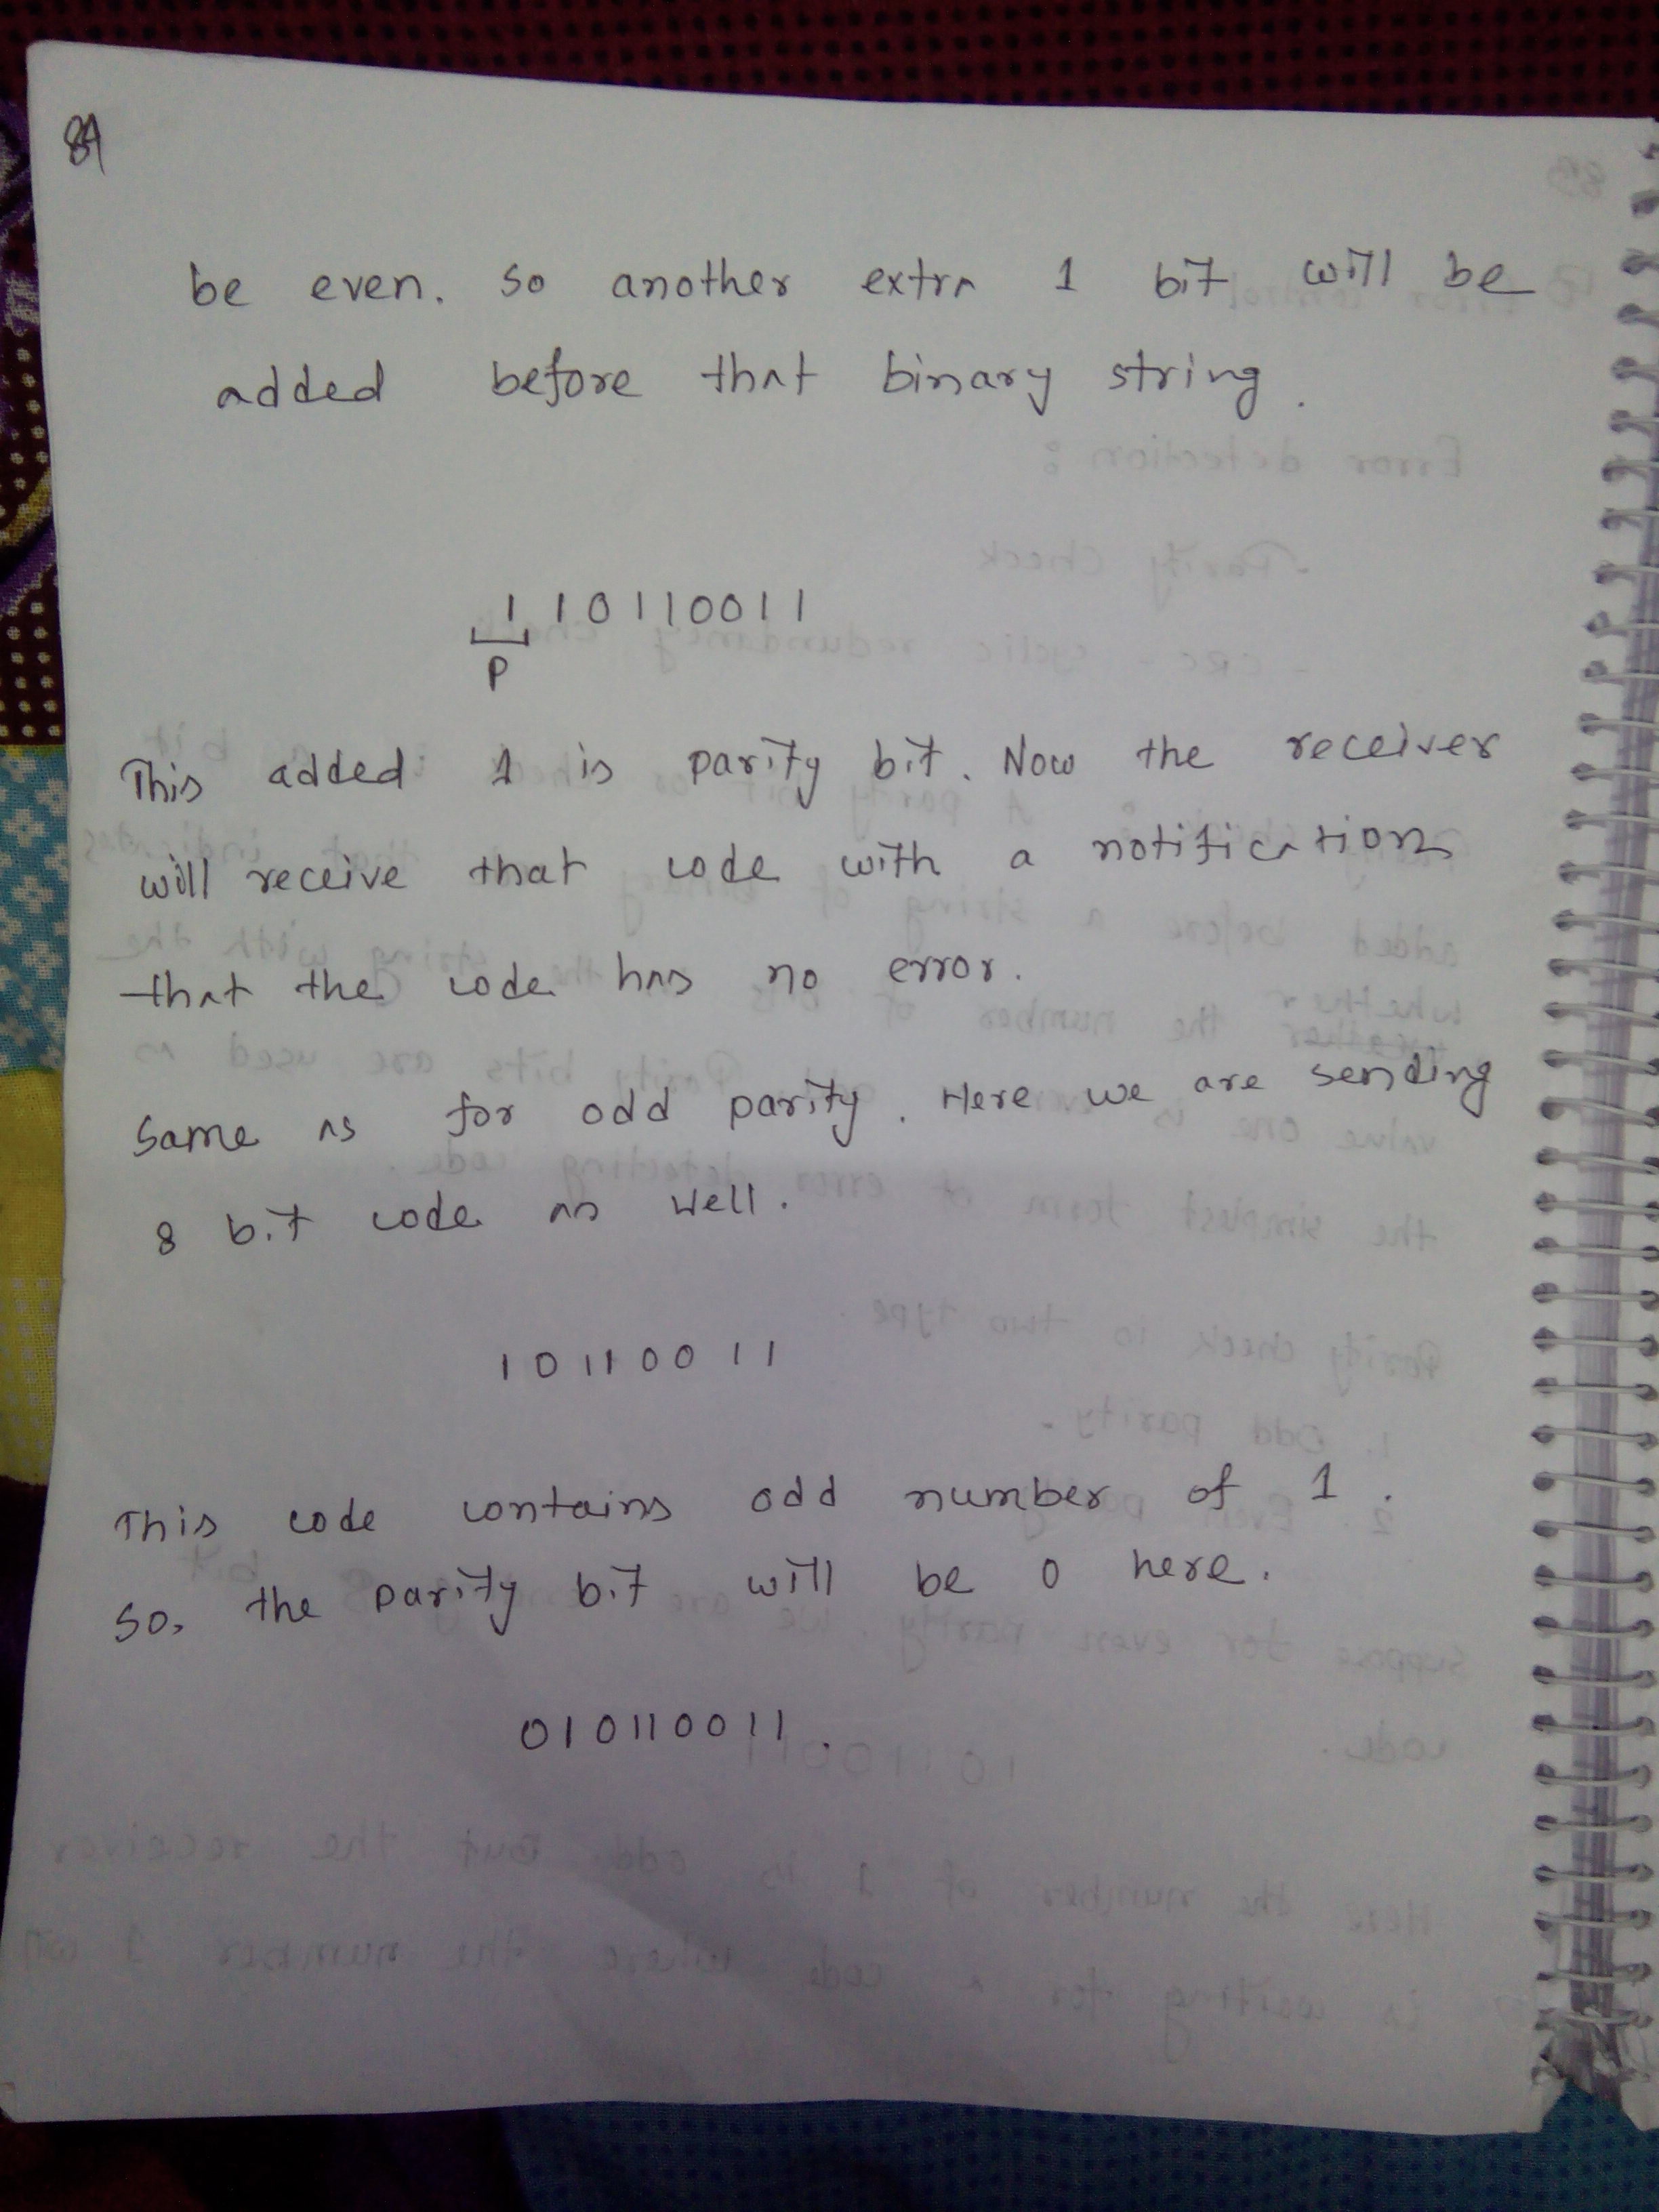 84
be even. so another extra 1 bit will be
added before that binary string.
1 10110011
P
This added 1 is parity bit. Now the receiver
will receive that code with a notification
that the code has no error.
Same as for odd parity. Here we are sending
8 bit code as well.
10110011
This code contains odd number of 1.
So, the parity bit will be 0 here.
010110011.